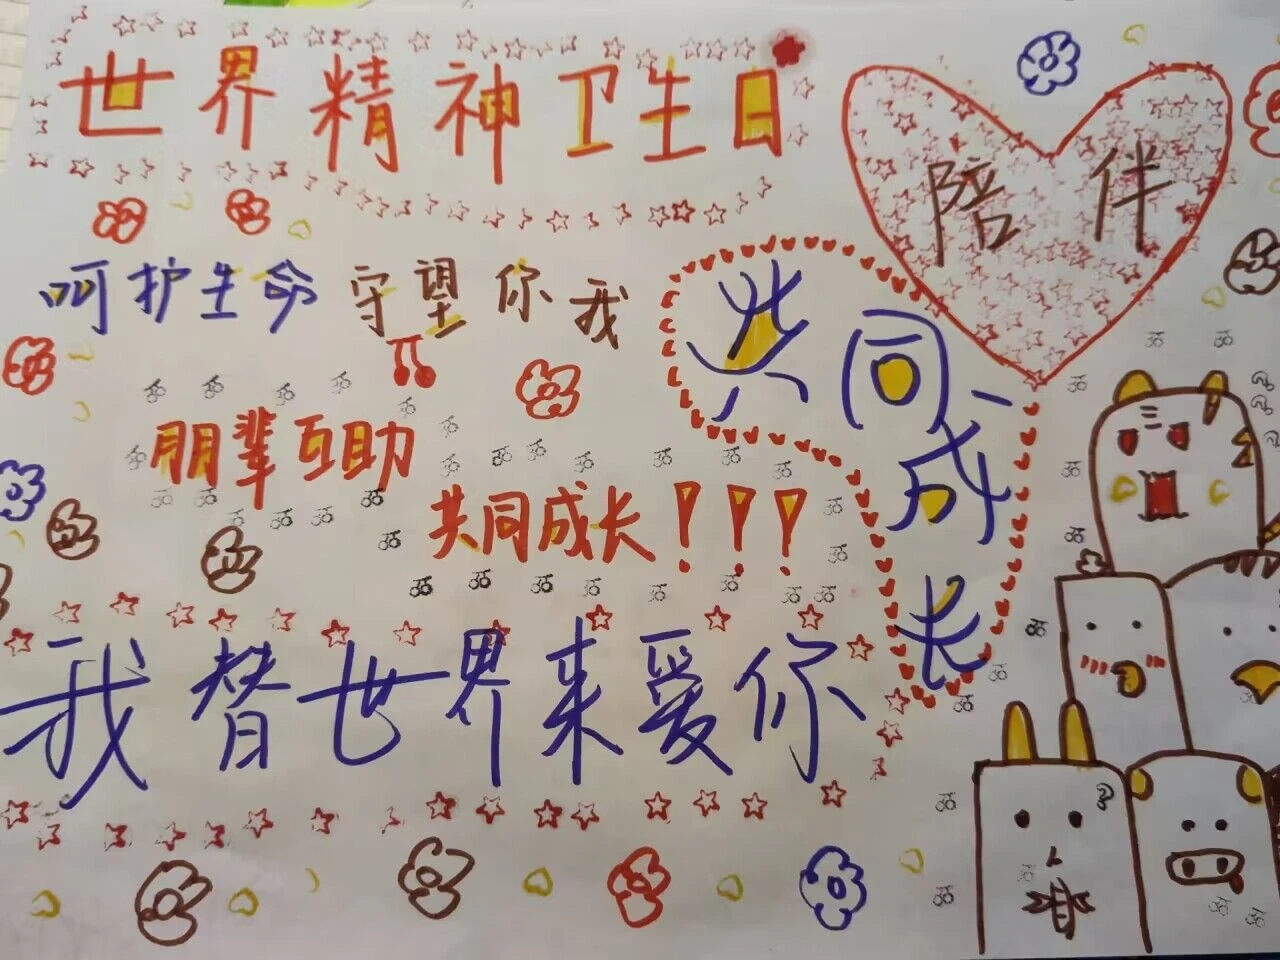 世界精神卫生日
陪伴
呵护生命 守望你我
共同成长
朋辈互助
共同成长！！！
我替世界来爱你